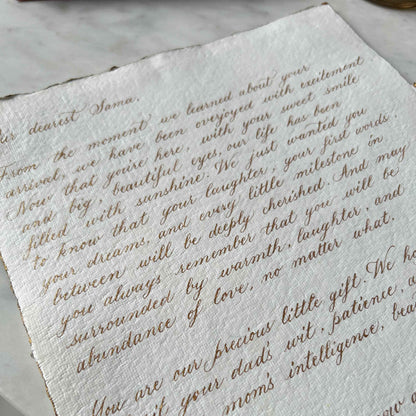 dearest Sama,
From the moment we learned about your
arrival, we have been ovejoyed with excitement
Now that you're here, with your sweet smile
and big, beautiful eyes, our life has been
filled with sunshine. We just wanted you
to know that your laughter, your first words,
your dreams, and every little milestone in
between will be deeply cherished. And may
you always remember that you will be
surrounded by warmth, laughter, and
abundance of love, no matter what.
You are our precious little gift. We ho
your dad's wit, patience, a
mom's intelligence, bea